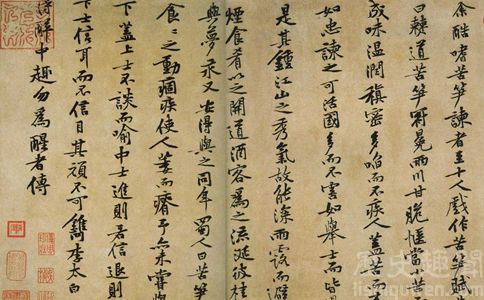 余酷嗜苦笋諫者至十人戲作苦笋賦
曰僰道苦笋冠冕兩川甘脆愜當小苦
成味溫潤縝密多啗而不疾人蓋苦
如忠諫之可活國多而不害如舉士而皆
是其鍾江山之秀氣故能深雨露而避
煙食肴以之開道酒客為之流涎彼桂
與夢汞又安得與之同年蜀人曰苦笋
食〻之動痼疾使人萎而瘠予亦未嘗與
下蓋上士不談而喻中士進則若信退則
下士信耳而不信目其頑不可鐫李太白
得醉中趣勿為醒者傳
历史趣闻